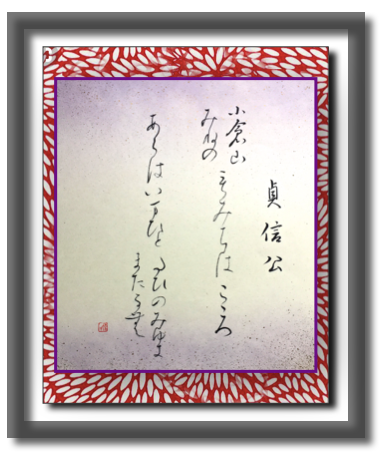 貞信公
小倉山
みねの
もみちは こころ
あらはいまひと たひのみゆき
またなむ